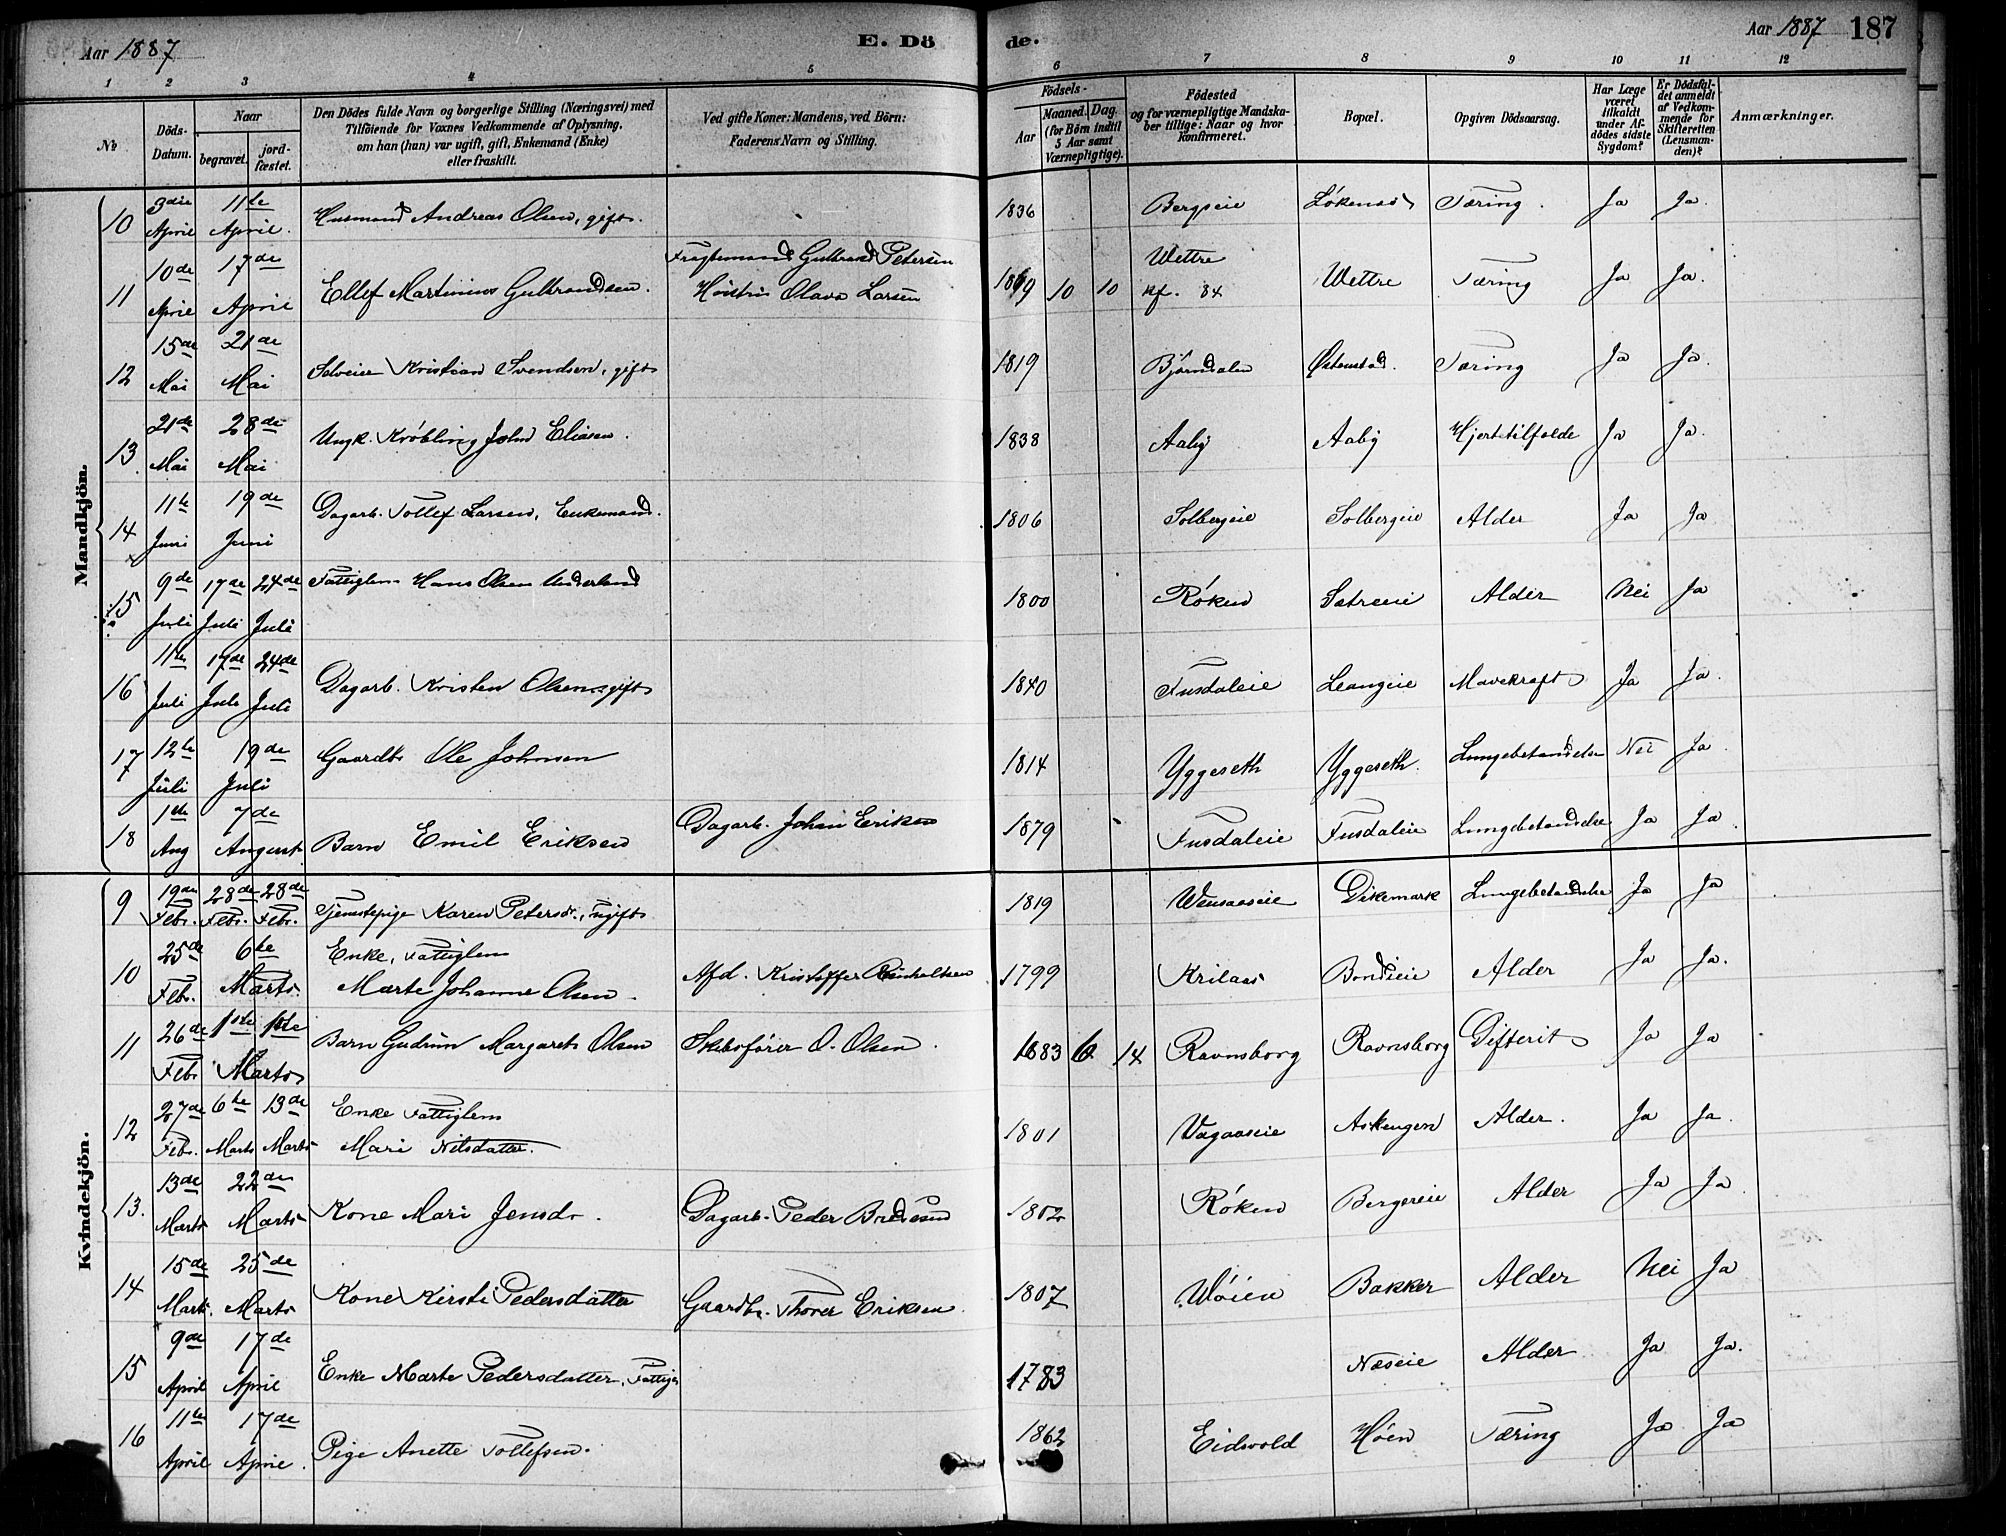 Aar 1887 E. Dö
de. Aar 1887 187
1 2 3 4 5 6 7 8 9 10 11 12
No
Döds-Datum.
Naar
begravet. jordfæstet.
Den Dödes fulde Navn og borgerlige Stilling (Næringsvei) med
Tilföiende for Voxnes Vedkommende af Oplysning,
om han (hun) var ugift, gift, Enkemand (Enke)
eller fraskilt.
Ved gifte Koner: Mandens, ved Börn:
Faderens Navn og Stilling.
Födsels-
Aar Maaned. Dag.
(for Börn indtil
5 Aar samt
Værnepligtige).
Födested
og for værnepligtige Mandskaber tillige: Naar og hvor
konfirmeret.
Bopæl.
Opgiven Dödsaarsag.
Har Læge
været
tilkaldt
under Afdödes sidste
Sygdom?
Er Dödsfaldet anmeldt
af Vedkommende for
Skifteretten
(Lensmanden)?
Anmærkninger.
Mandkjön.
10 3die April 11te April. Husmand Andreas Olsen, gift. 1836 Bergseie Løkenes Tæring. Ja Ja.
11 10de April 17de April Ellef Martinius Gulbrandsen. Fragtemand Gulbrand Petersen Hustru Olava Larsen 1869 10 10 Wettre kf. 84 Wettre Tæring Ja Ja.
12 15de Mai 21de Mai Selveier Kristian Svendsen, gift 1819 Bjørndalen Østenstad. Tæring Ja Ja.
13 21de Mai 28de Mai Ungk. Krøbling John Eliasen. 1838 Aaby Aaby Hjertetilfælde Ja Ja.
14 11te Juni 19de Juni Dagarb. Tollef Larsen, Enkemand. 1806 Solbergeie Solbergeie Alder Ja Ja
15 9de Juli 17de Juli 24de Juli Fattiglem Hans Olsen Underland 1800 Røken Sætreeie Alder Nei Ja
16 11te Juli 17de Juli 24de Juli Dagarb. Kristen Olsen, gift 1840 Fusdaleie Leangeie Mavekræft Ja Ja.
17 12te Juli 19de Juli Gaardbr Ole Johnsen 1814 Yggeseth Yggeseth. Lungebetændelse Nei Ja.
18 1ste Aug 7de August Barn Emil Eriksen Dagarb. Johan Eriksen 1879 Fusdaleie Fusdaleie Lungebetændelse Ja Ja.
Kvindekjön.
9 19de Febr. 28de Febr. 28de Febr. Tjenestepige Karen Petersdr., ugift 1819 Wensaaseie Dikemark Lungebetændelse Ja Ja
10 25de Febr. 6te Marts. Enke, Fattiglem Marte Johanne Olsen. Afd. Kristoffer 1799 Krilaas Bondieie Alder Ja Ja.
11 26de Febr 1ste 1ste Marts Barn Gudrun Margaret Olsen Skibsfører O. Olsen. 1883 6 14 Ravnsborg Ravnsborg Difterit Ja Ja
12 27de Febr. 6te Marts 13de Marts Enke Fattiglem Mari Nilsdatter. 1801 Vogaaseie Askengen Alder. Ja Ja.
13. 13de Marts 22de Marts Kone Mari Jensdr. Dagarb. Peder Bredesen 1802 Røken Bergereie Alder Ja Ja
14 15de Marts. 25de Marts Kone Kirsti Pedersdatter Gaardbr. Thorer Eriksen. 1807 Wøien Bakker Alder Nei Ja
15 9de April 17de April Enke Marte Pedersdatter, Fattigl. 1783 Næseie Alder Ja Ja.
16 11te April 17de April. Pige Anette Tollefsen. 1862 Eidsvold Høen Tæring Ja Ja